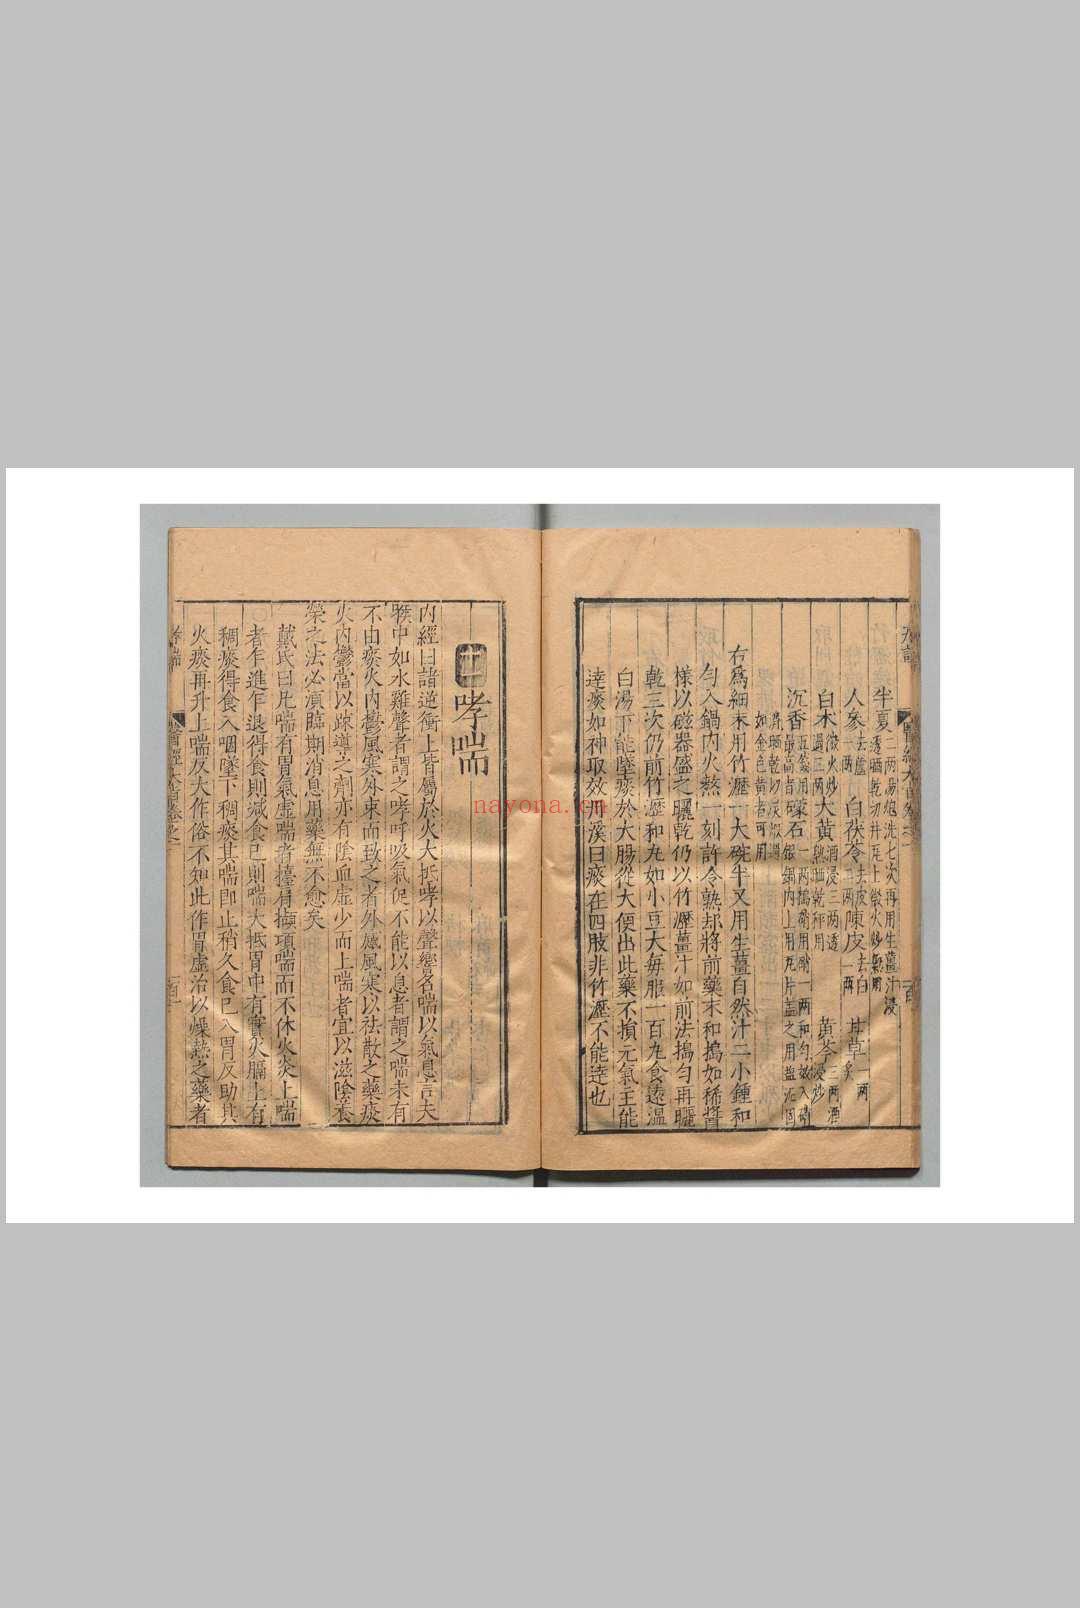 半夏二兩湯炮洗七次再用生薑汁浸透晒乾切片瓦上微火炒熟用
人參去蘆一兩 白茯苓去皮二兩 陳皮去白一兩 甘草炙一兩
白术微火炒過三兩 大黄酒浸三兩透熟晒乾秤用 黄芩三兩酒浸炒
沉香五錢用最高者 礞石一兩搗碎用硝一兩和勻放入硝銀鍋內上用瓦片盖之用盐泥固
如金色黄者可用
右爲細末用竹瀝一大碗半又用生薑自然汁二小鍾和
勻入鍋內火熬一刻許令熟却將前藥末和搗如稀醬
樣以磁器盛之曬乾仍以竹瀝薑汁如前法搗勻再曬
乾三次仍前竹瀝和丸如小豆大每服一百丸食遠溫
白湯下能墜痰於大腸從大便出此藥不損元氣主能
達痰如神取效丹溪曰痰在四肢非竹瀝不能達也
哮喘
內經曰諸逆衝上皆屬於火大抵哮以聲響名喘以氣息言夫
喉中如水雞聲者謂之哮呼吸氣促不能以息者謂之喘未有
不由痰火內鬱風寒外束而致之者外爐風寒以祛散之藥痰
火內鬱當以踈導之劑亦有陰血虛少而上喘者宜以滋陰養
榮之法必須臨期消息用藥無不愈矣
戴氏曰凡喘有胃氣虛喘者擡肩擷項喘而不休火炎上喘
者乍進乍退得食則減食已則喘大抵胃中有實火膈上有
稠痰得食入咽墜下稠痰其喘即止稍久食已入胃反助其
火痰再升上喘反大作俗不知此作胃虛治以燥熱之藥者
nayona.cn